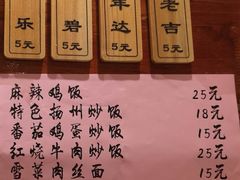 乐
5元
碧
5元
年达
5元
老吉
5元
麻辣鸡饭 25元
特色扬州炒饭 18元
番茄鸡蛋炒饭 15元
红烧牛肉炒饭 25元
雪菜肉丝面 15元